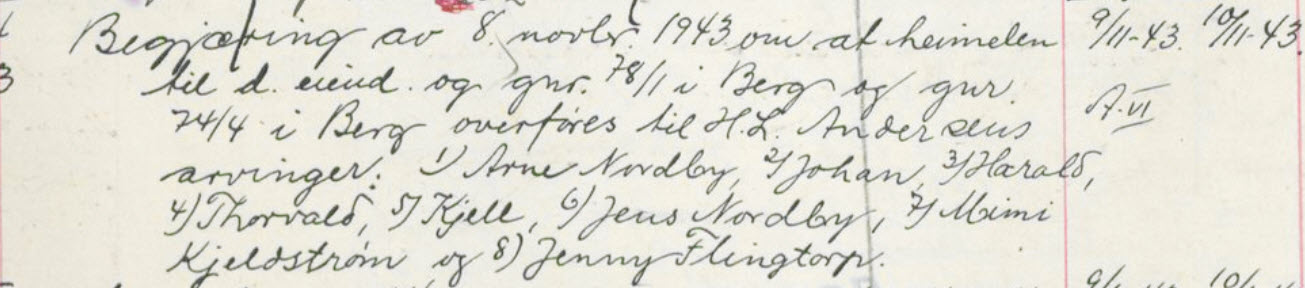 Begjæring av 8. novbr. 1943 om at heimelen 9/11-43. 10/11-43
til d. eiend. og gnr. 78/1 i Berg og gnr. A. VI
74/4 i Berg overføres til H.L. Andersens
arvinger: 1) Arne Nordby, 2) Johan, 3) Harald,
4) Thorvald, 5) Kjell, 6) Jens Nordby, 7) Mimi
Kjeldstrøm og 8) Jenny Flingtorp.